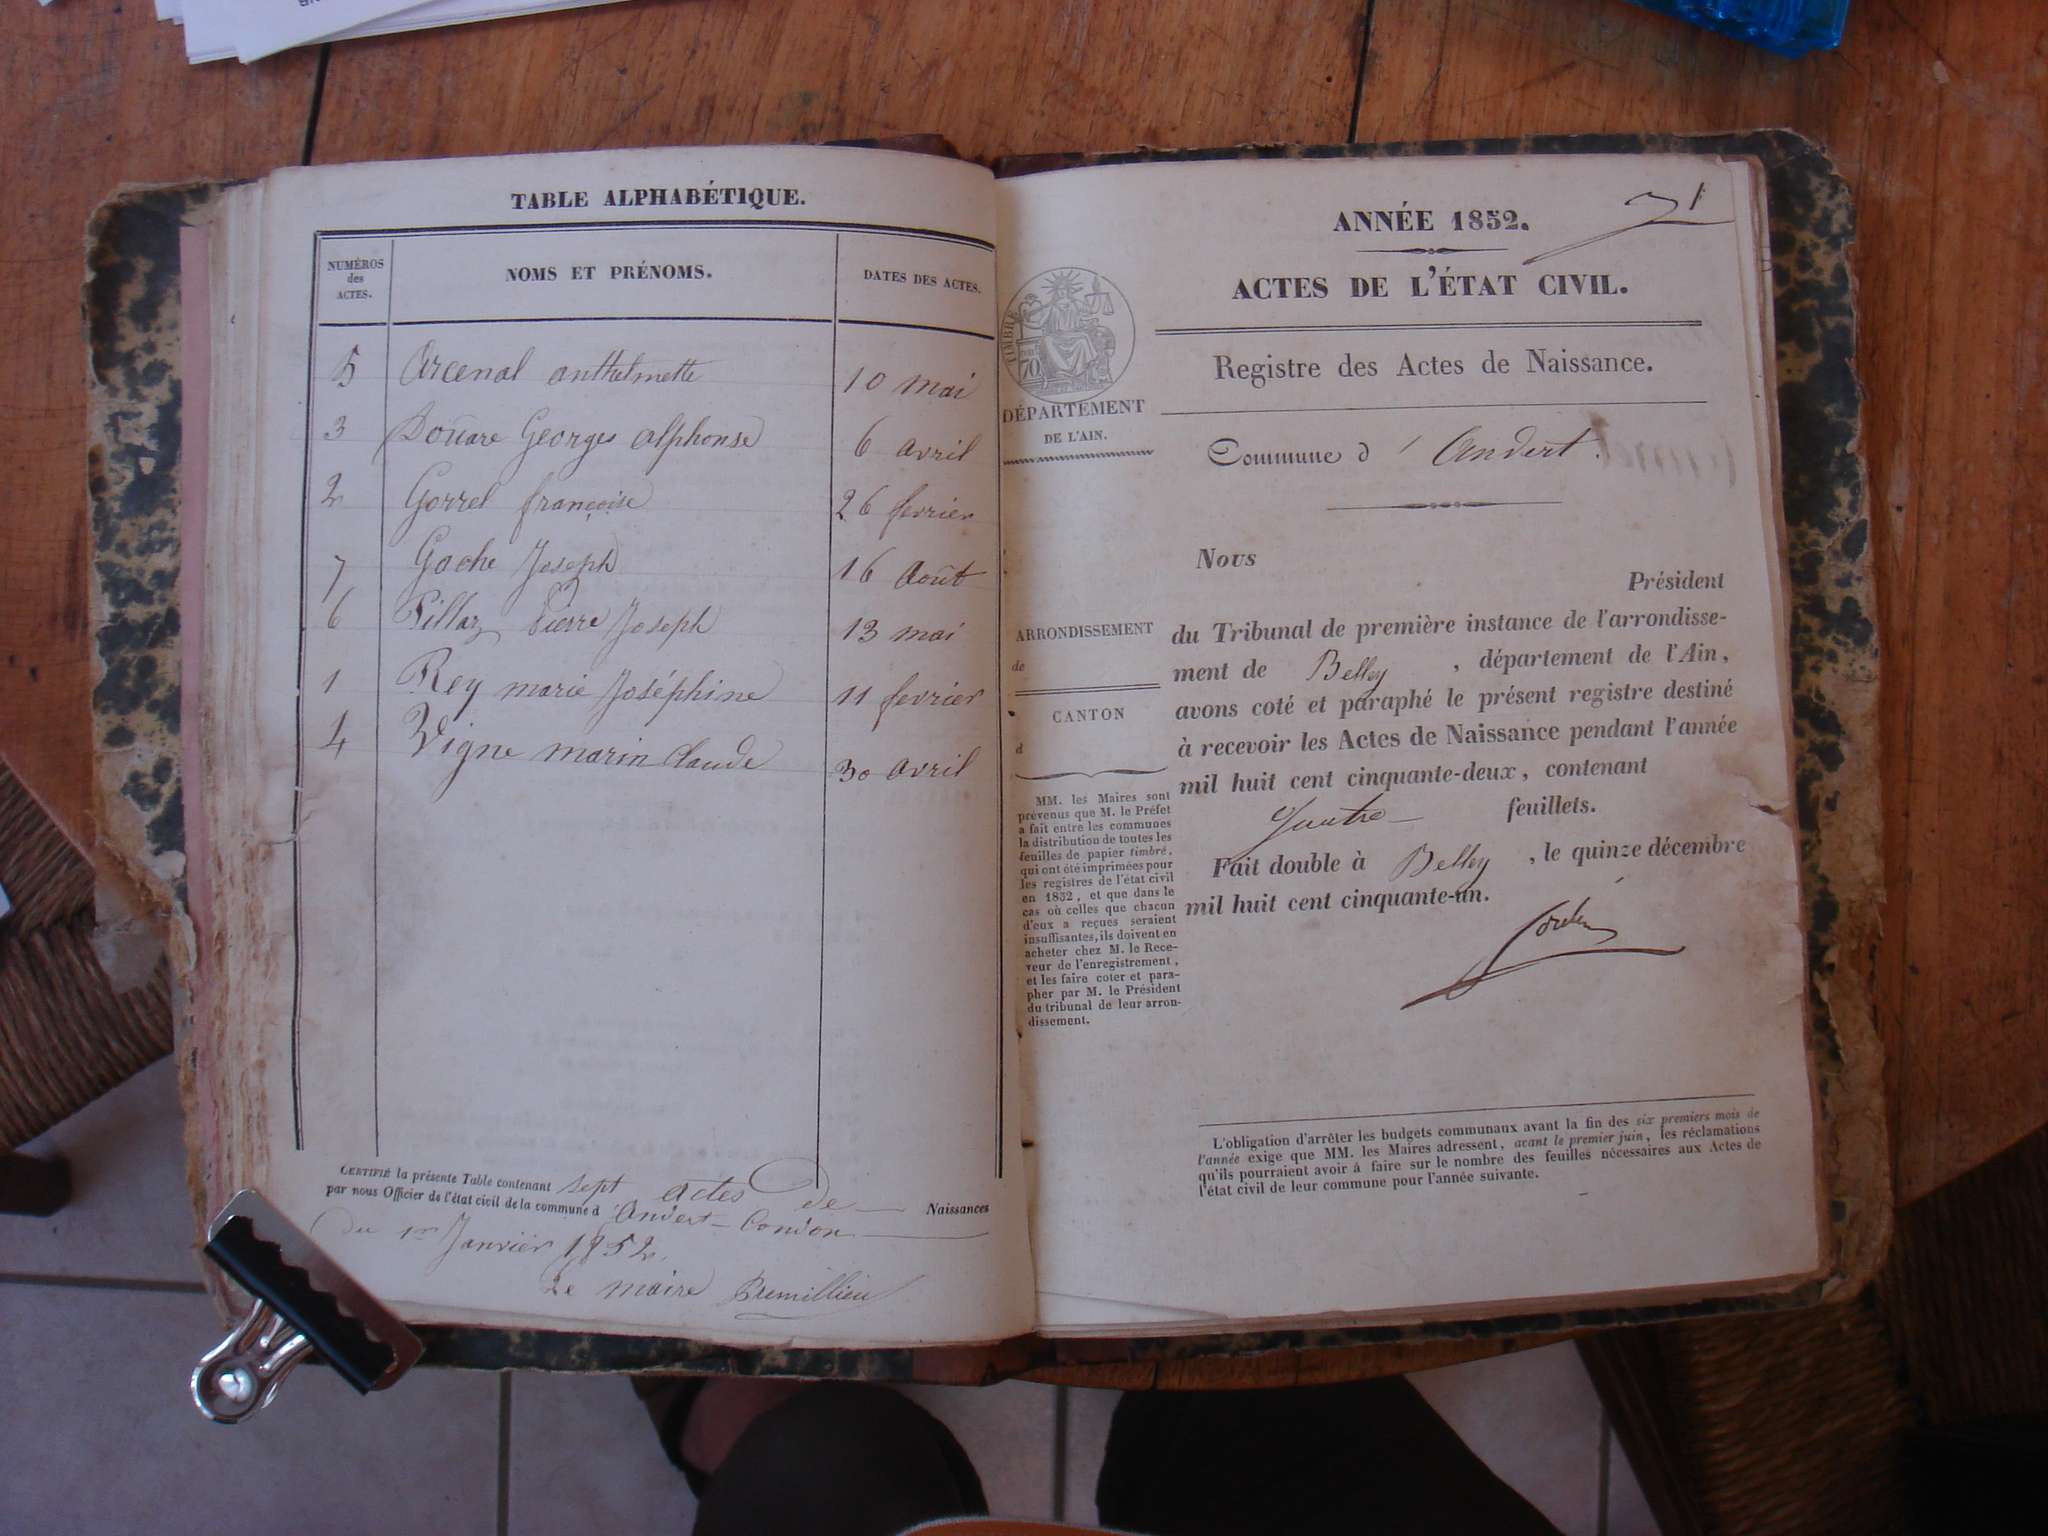 TABLE ALPHABÉTIQUE.
NUMÉROS des ACTES. NOMS ET PRÉNOMS. DATES DES ACTES.
5 Arcenal anthelmette 10 mai
3 Douare Georges alphonse 6 avril
2 Gorrel françoise 26 fevrier
7 Gache Joseph 16 Août
6 Pillaz Pierre Joseph 13 mai
1 Rey marie Joséphine 11 fevrier
4 Vigne marin Claude 30 avril
CERTIFIÉ la présente Table contenant sept actes de Naissances
par nous Officier de l'état civil de la commune d'Andert-Condon
Du 1er Janvier 1852
Le maire Bremillieu
1
ANNÉE 1852.
ACTES DE L'ÉTAT CIVIL.
Registre des Actes de Naissance.
TIMBRE
70
DÉPARTEMENT
DE L'AIN.
Commune d'Andert.
Nous
Président
du Tribunal de première instance de l'arrondisse-
ment de Belley, département de l'Ain,
avons coté et paraphé le présent registre destiné
à recevoir les Actes de Naissance pendant l'année
mil huit cent cinquante-deux, contenant
quatre feuillets.
Fait double à Belley, le quinze décembre
mil huit cent cinquante-un.
ARRONDISSEMENT
de
CANTON
d
MM. les Maires sont
prévenus que M. le Préfet
a fait entre les communes
la distribution de toutes les
feuilles de papier timbré,
qui ont été imprimées pour
les registres de l'état civil
en 1852, et que dans le
cas où celles que chacun
d'eux a reçues seraient
insuffisantes, ils doivent en
acheter chez M. le Rece-
veur de l'enregistrement,
et les faire coter et para-
pher par M. le Président
du tribunal de leur arron-
dissement.
L'obligation d'arrêter les budgets communaux avant la fin des six premiers mois de
l'année exige que MM. les Maires adressent, avant le premier juin, les réclamations
qu'ils pourraient avoir à faire sur le nombre des feuilles nécessaires aux Actes de
l'état civil de leur commune pour l'année suivante.